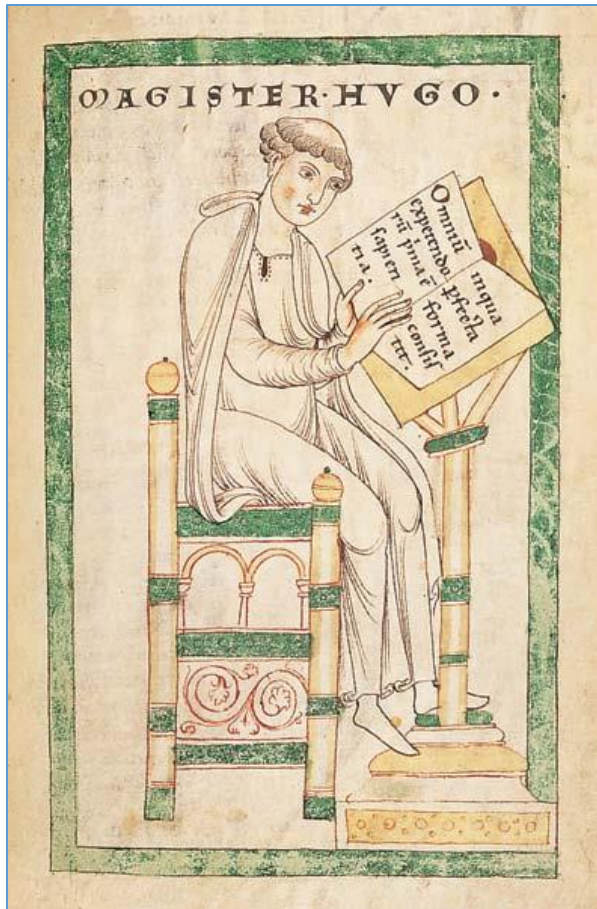 MAGISTER·HVGO·
Omniū
expetendo
rū p̄ma ē
sapien
tia·
inqua
ꝑfecta
forma
consis
tit·